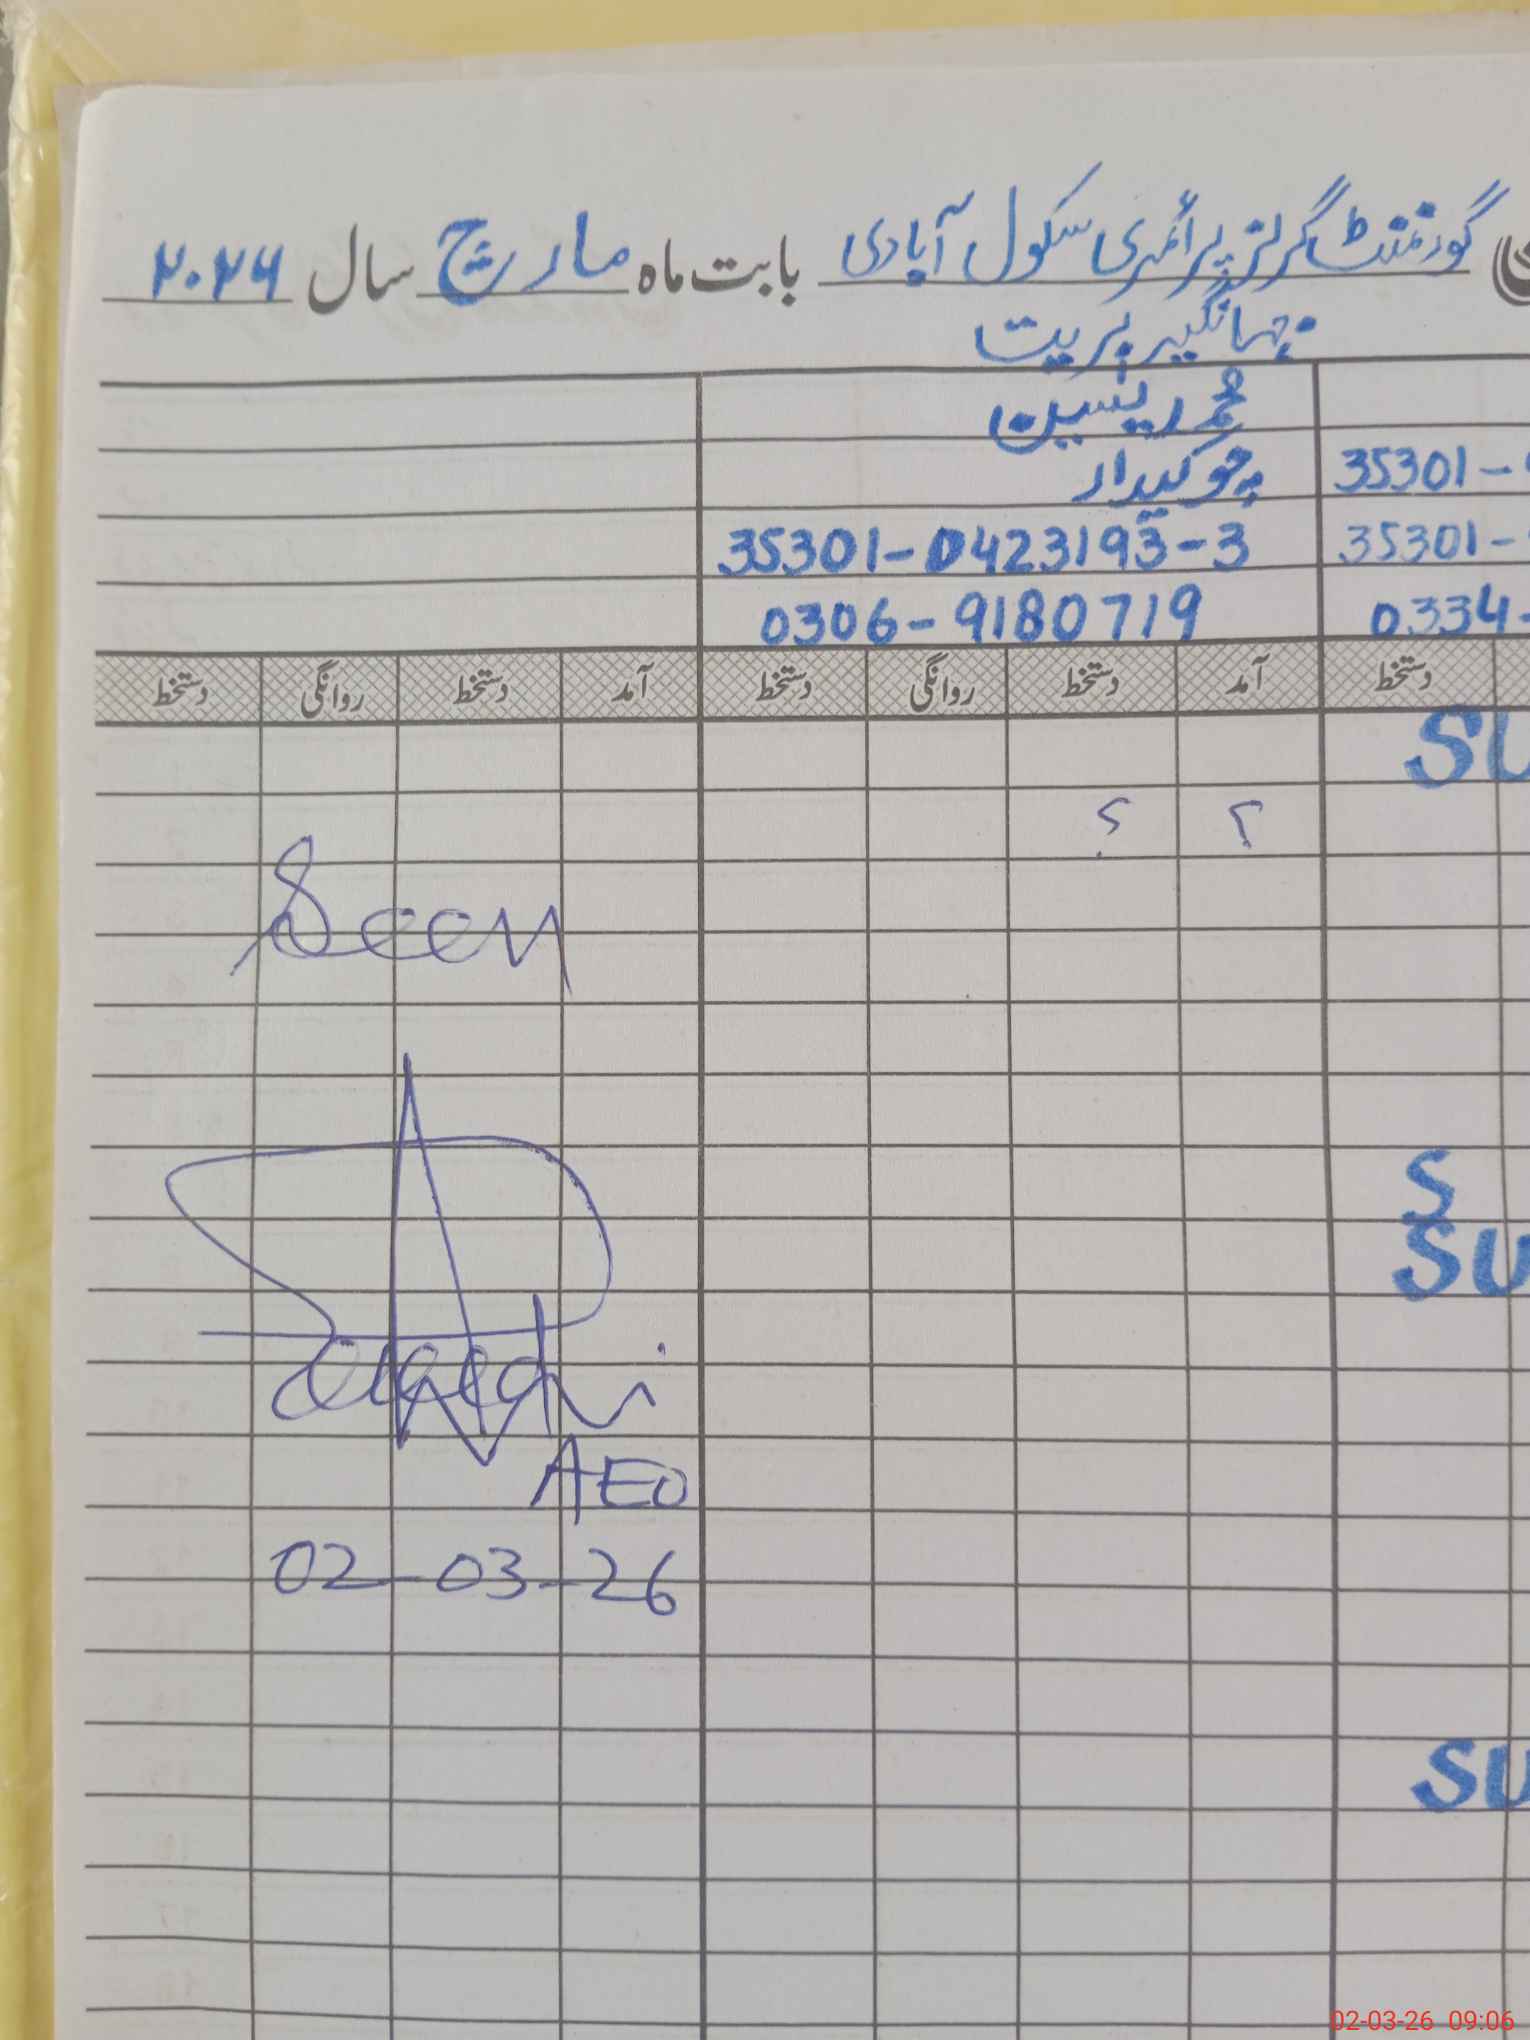 گورنمنٹ گرلز پرائمری سکول آبادی بابت ماہ مارچ سال ۲۰۲۶
جہانگیر پریت
محمد یٰسین
چوکیدار 35301-
35301-0423193-3 35301-
0306-9180719 0334-
دستخط آمد دستخط روانگی دستخط آمد دستخط روانگی دستخط
SU
؟ ؟
Seen
S
SU
AEO
02-03-26
SU
02-03-26 09:06